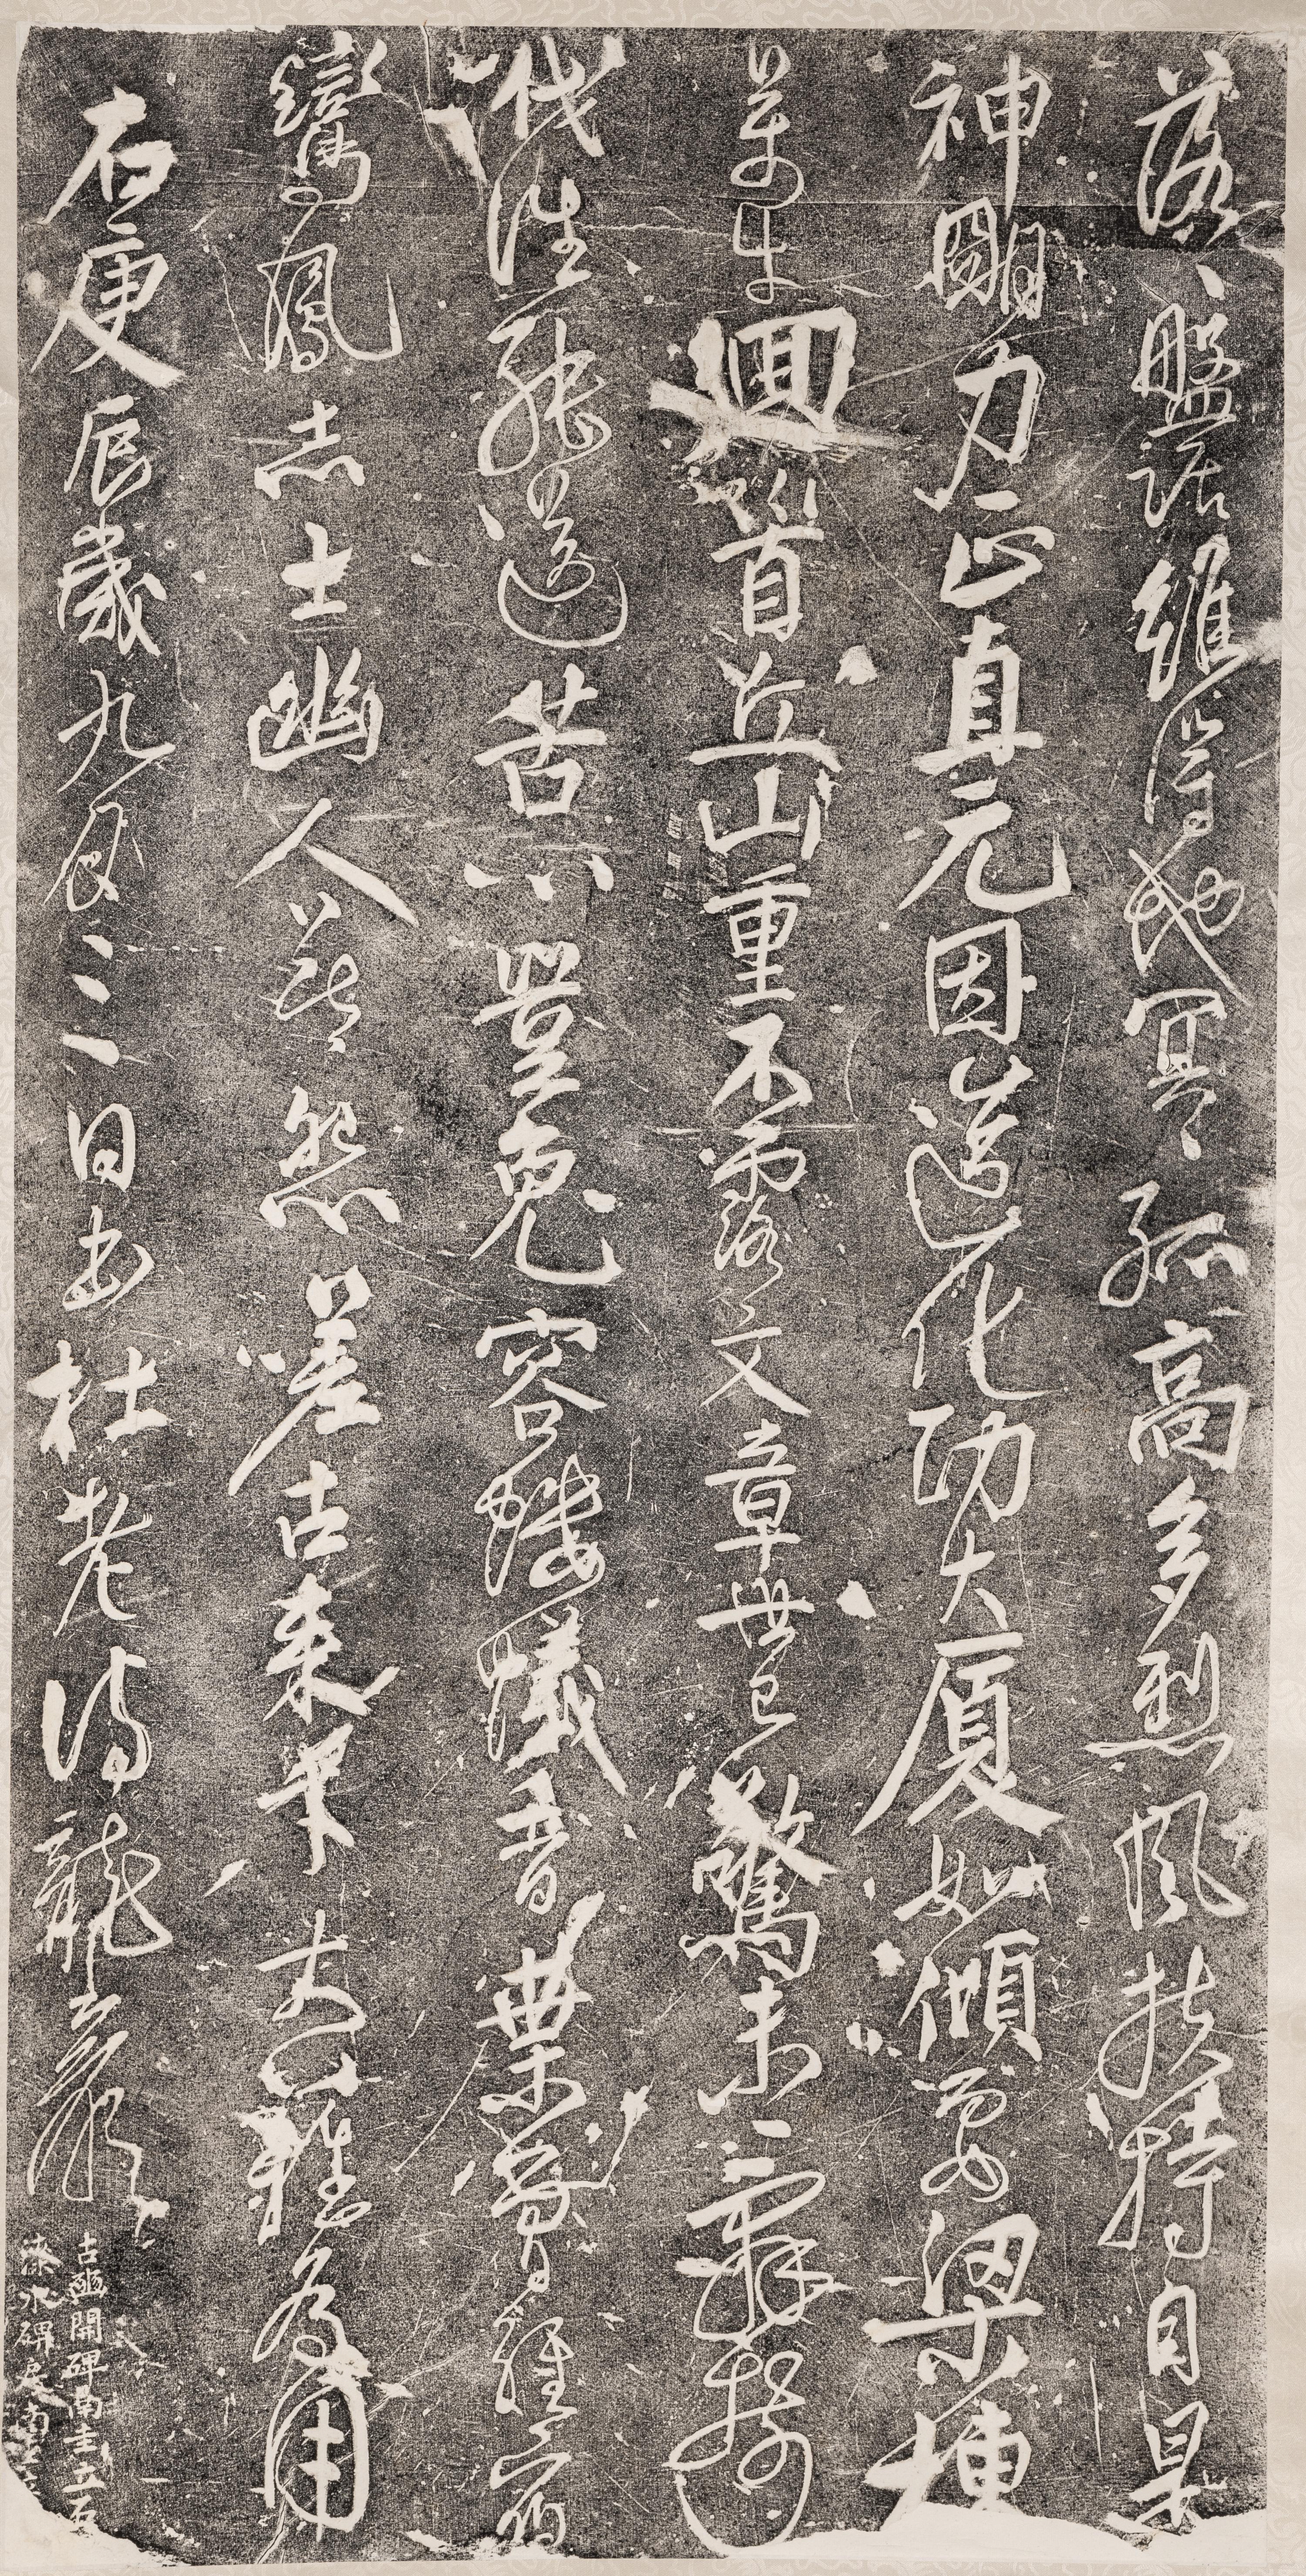 落〻盤踞雖得地冥〻孤高多烈風扶持自是
神朙力正直元因造化功大厦如傾要梁棟
萬牛迴首丘山重不露文章世已驚未辭剪
伐誰能送苦心豈免容螻蟻香葉曾經宿
鸞鳳志士幽人莫怨嗟古來材大難為用
右庚辰歲九月三日書杜老詩龍巖
古豳開碑南圭立石
漆水碑